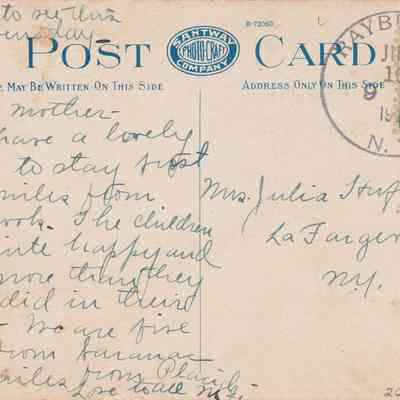 to
wednesday
R-72060
POST CARD
SANTWAY
PHOTO-CRAFT
COMPANY
E MAY BE WRITTEN ON THIS SIDE
ADDRESS ONLY ON THIS SIDE
RAYB
9
N.
Mother-
have a lovely
to stay just
miles from
ook. The children
uite happy and
more than they
did in their
- We are five
from Saranac
miles from Placid
Love to all M.G.
Mrs. Julia Huf
La Farge
N.Y.